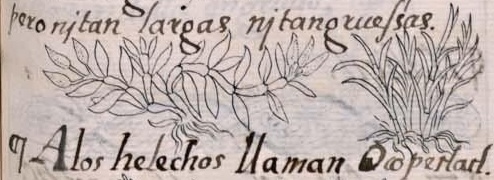 pero nj tan largas nj tan gruessas.
¶ A los helechos llaman Ocopetlatl.